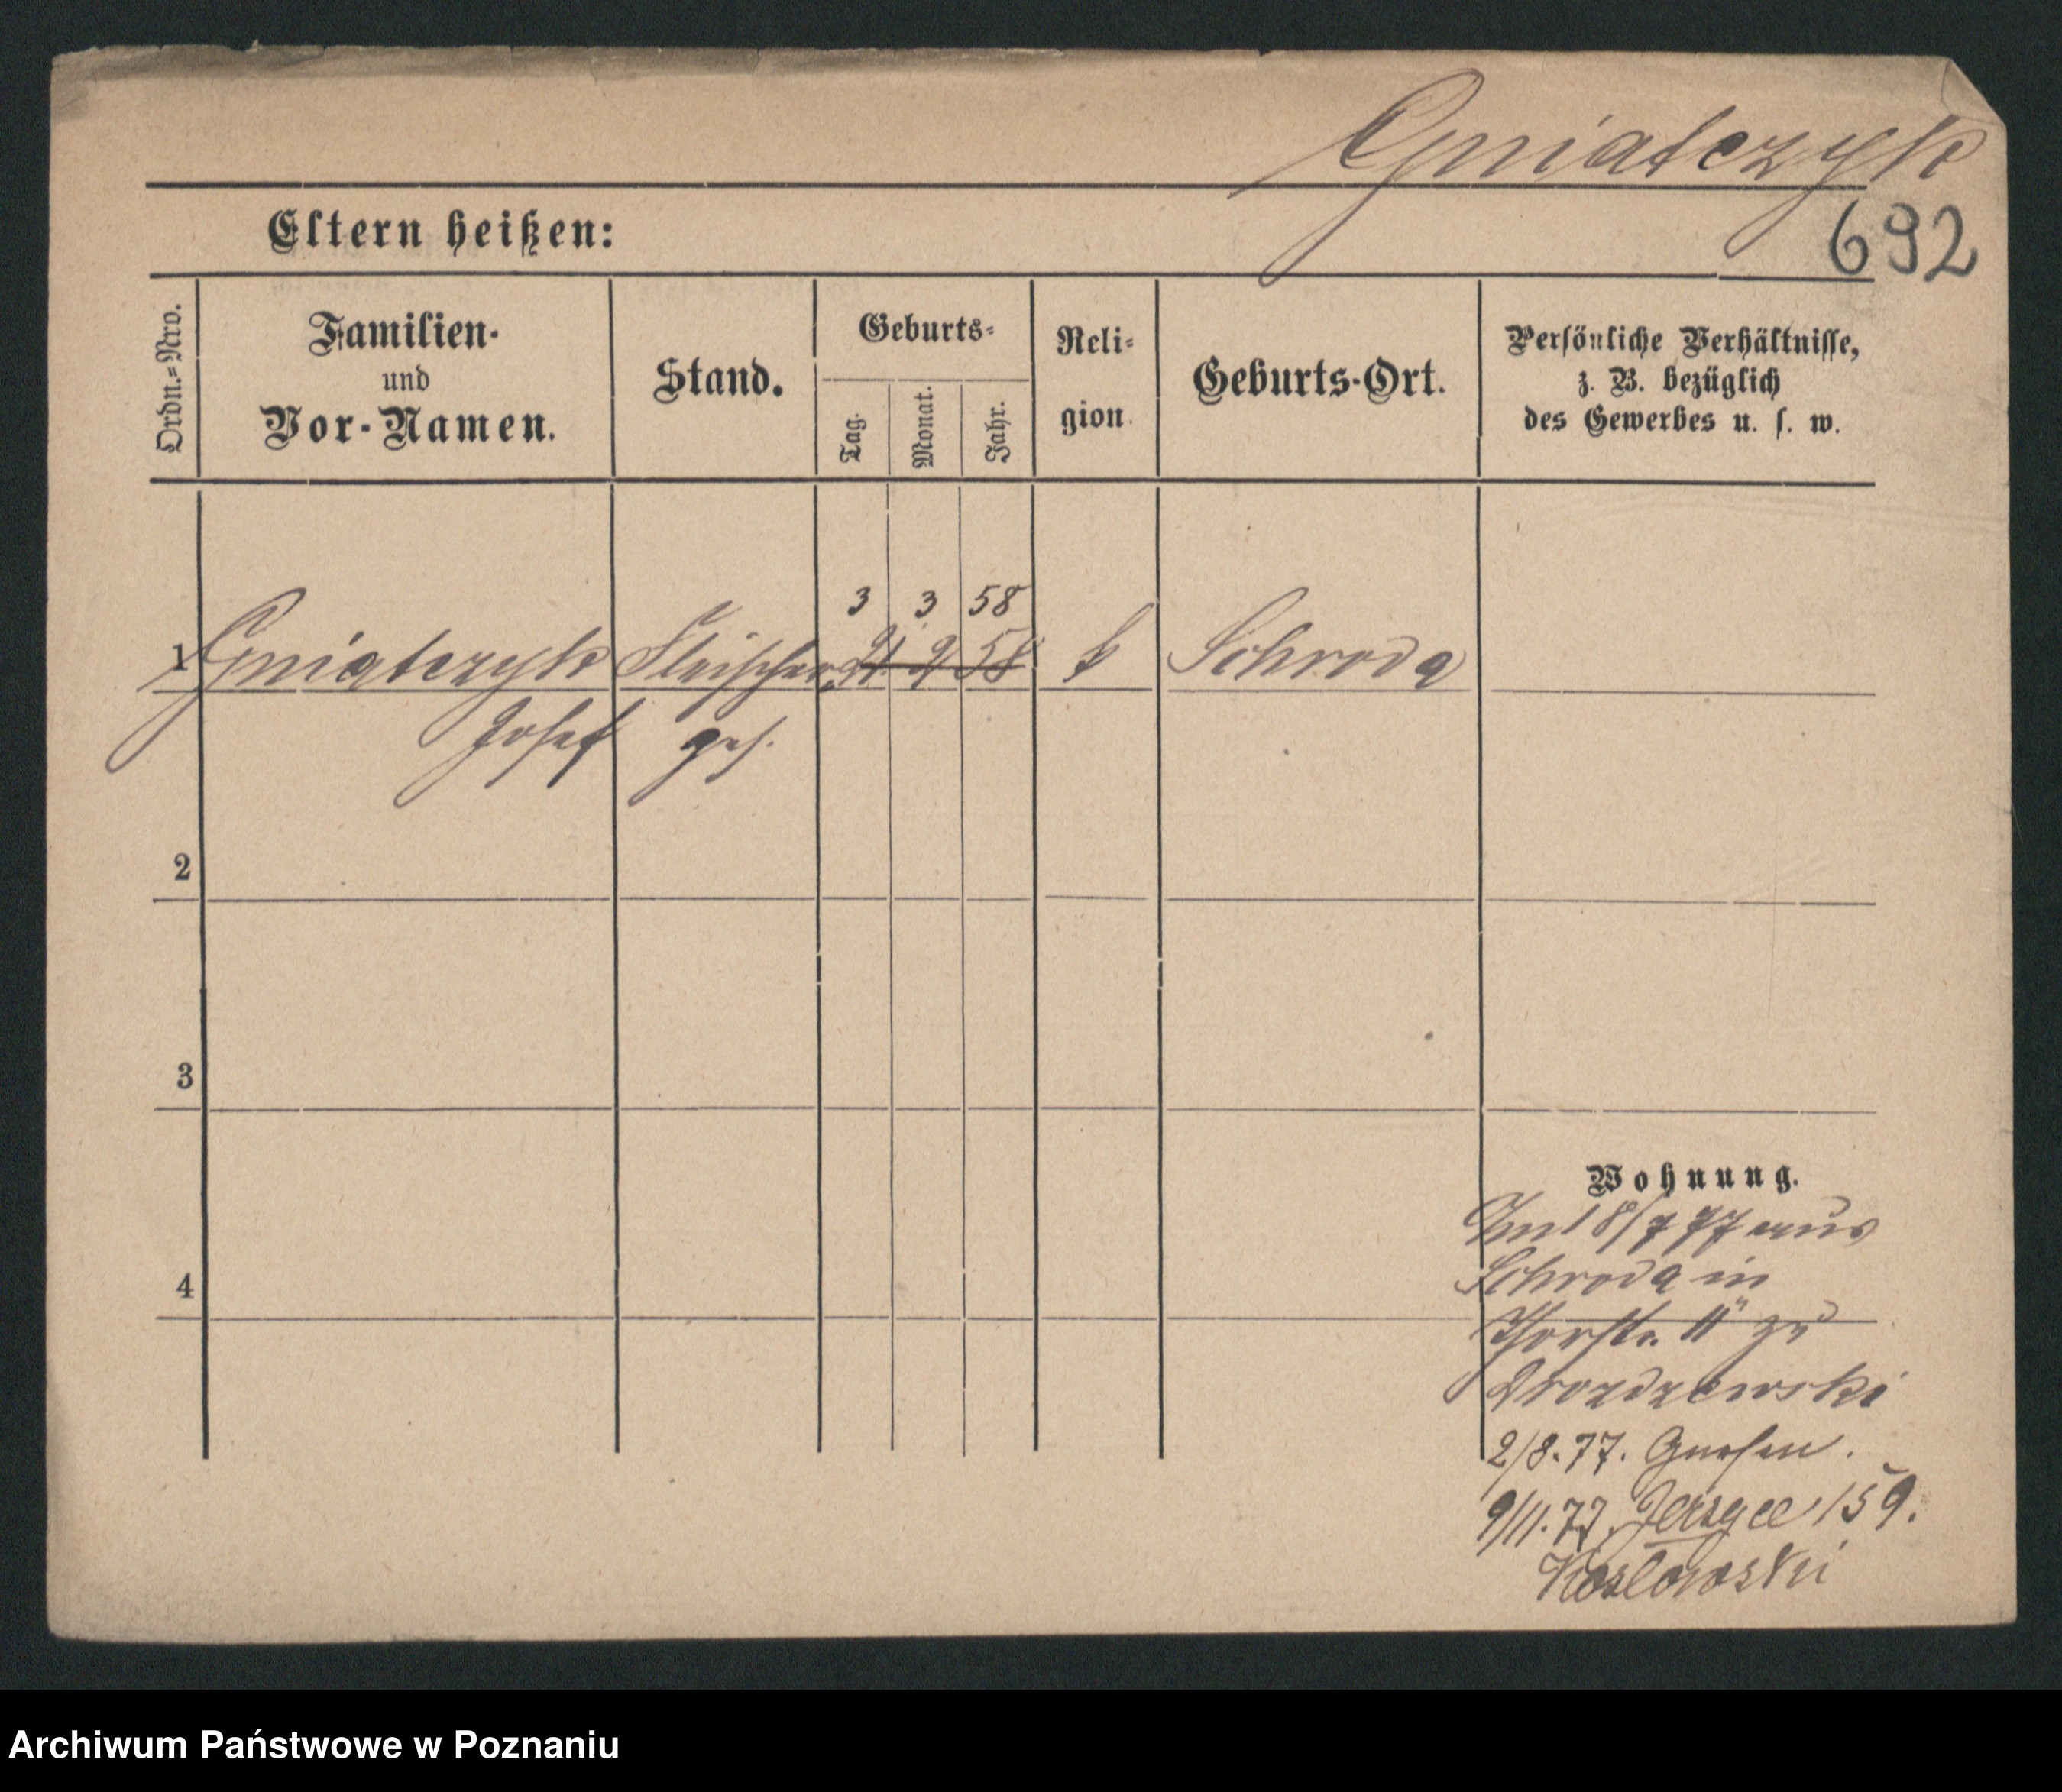 Gniatczyk
692
Eltern heißen:
Ordn.-Nro.
Familien-
und
Vor-Namen.
Stand.
Geburts-
Tag.
Monat.
Jahr.
Reli-
gion.
Geburts-Ort.
Persönliche Verhältnisse,
z. B. bezüglich
des Gewerbes u. s. w.
3 3 58
1 Gniatczyk Fleischer 21 2 58 k Schroda
Josef ges.
2
3
4
Wohnung.
18/7 77 aus
Schroda in
Thorstr. 11 zu
Drozdzewski
2/8.77. Gnesen.
9/11.77. Jerzyce 159.
Koslowski
Archiwum Państwowe w Poznaniu